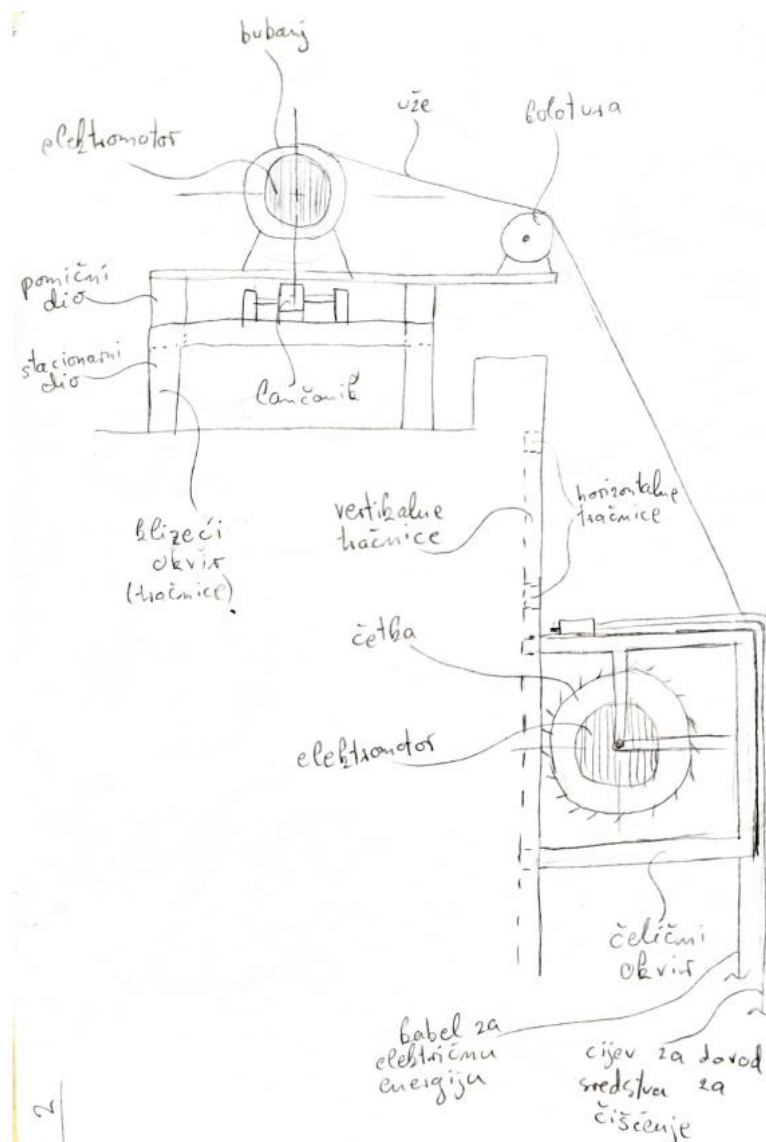 bubanj
uže
kolotura
elektromotor
pomični
dio
stacionarni
dio
lančanik
klizeći
okvir
(tračnice)
vertikalne
tračnice
horizontalne
tračnice
četka
elektromotor
čelični
okvir
kabel za
električnu
energiju
cijev za dovod
sredstva za
čišćenje
2